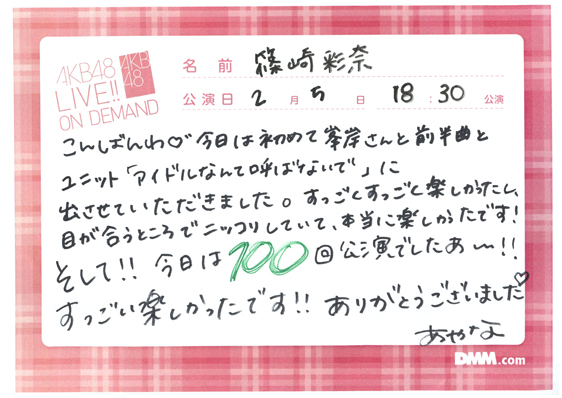 AKB48
LIVE!!
ON DEMAND
AKB
48
名前 篠崎彩奈
公演日 2月5日 18:30公演
こんしばんわ♡今日は初めて峯岸さんと前半曲と
ユニット「アイドルなんて呼ばないで」に
出させていただきました。すっごくすっごく楽しかったし、
目が合うところでニッコリしていて、本当に楽しかったです!
そして!!今日は100回公演でしたあ〜!!
すっごい楽しかったです!!ありがとうございました♡
あやなん
DMM.com